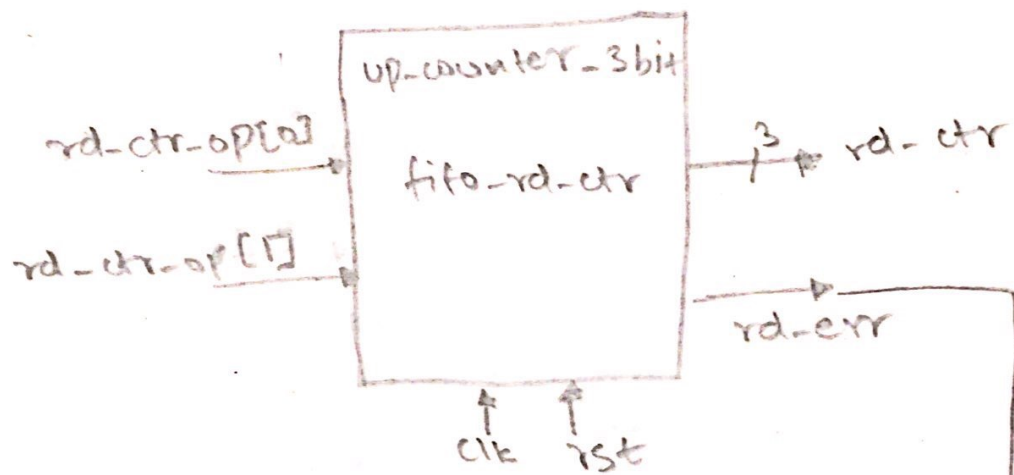 up_counter_3bit
rd_ctr_op[0]
fifo_rd_ctr
3
rd_ctr
rd_ctr_op[1]
rd_err
clk
rst